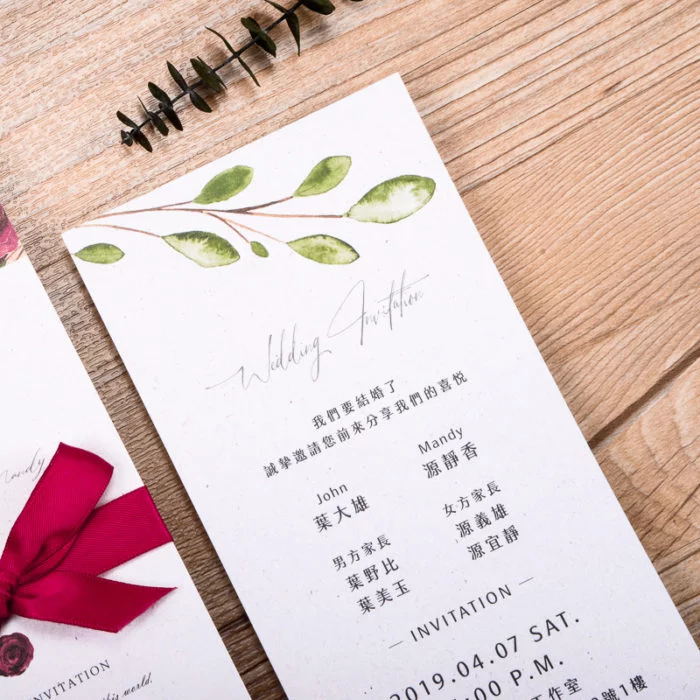 Wedding Invitation
我們要結婚了
誠摯邀請您前來分享我們的喜悅
John
葉大雄
Mandy
源靜香
男方家長
葉野比
葉美玉
女方家長
源義雄
源宜靜
— INVITATION —
2019.04.07 SAT.
:00 P.M.
作室
號1樓
Mandy
NVITATION
this world.